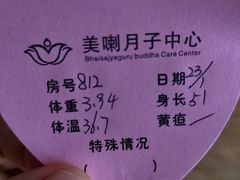 美喇月子中心
Bhaisajyaguru buddha Care Center
房号812 日期23/1
体重3.94 身长51
体温36.7 黄疸—
特殊情况
( )